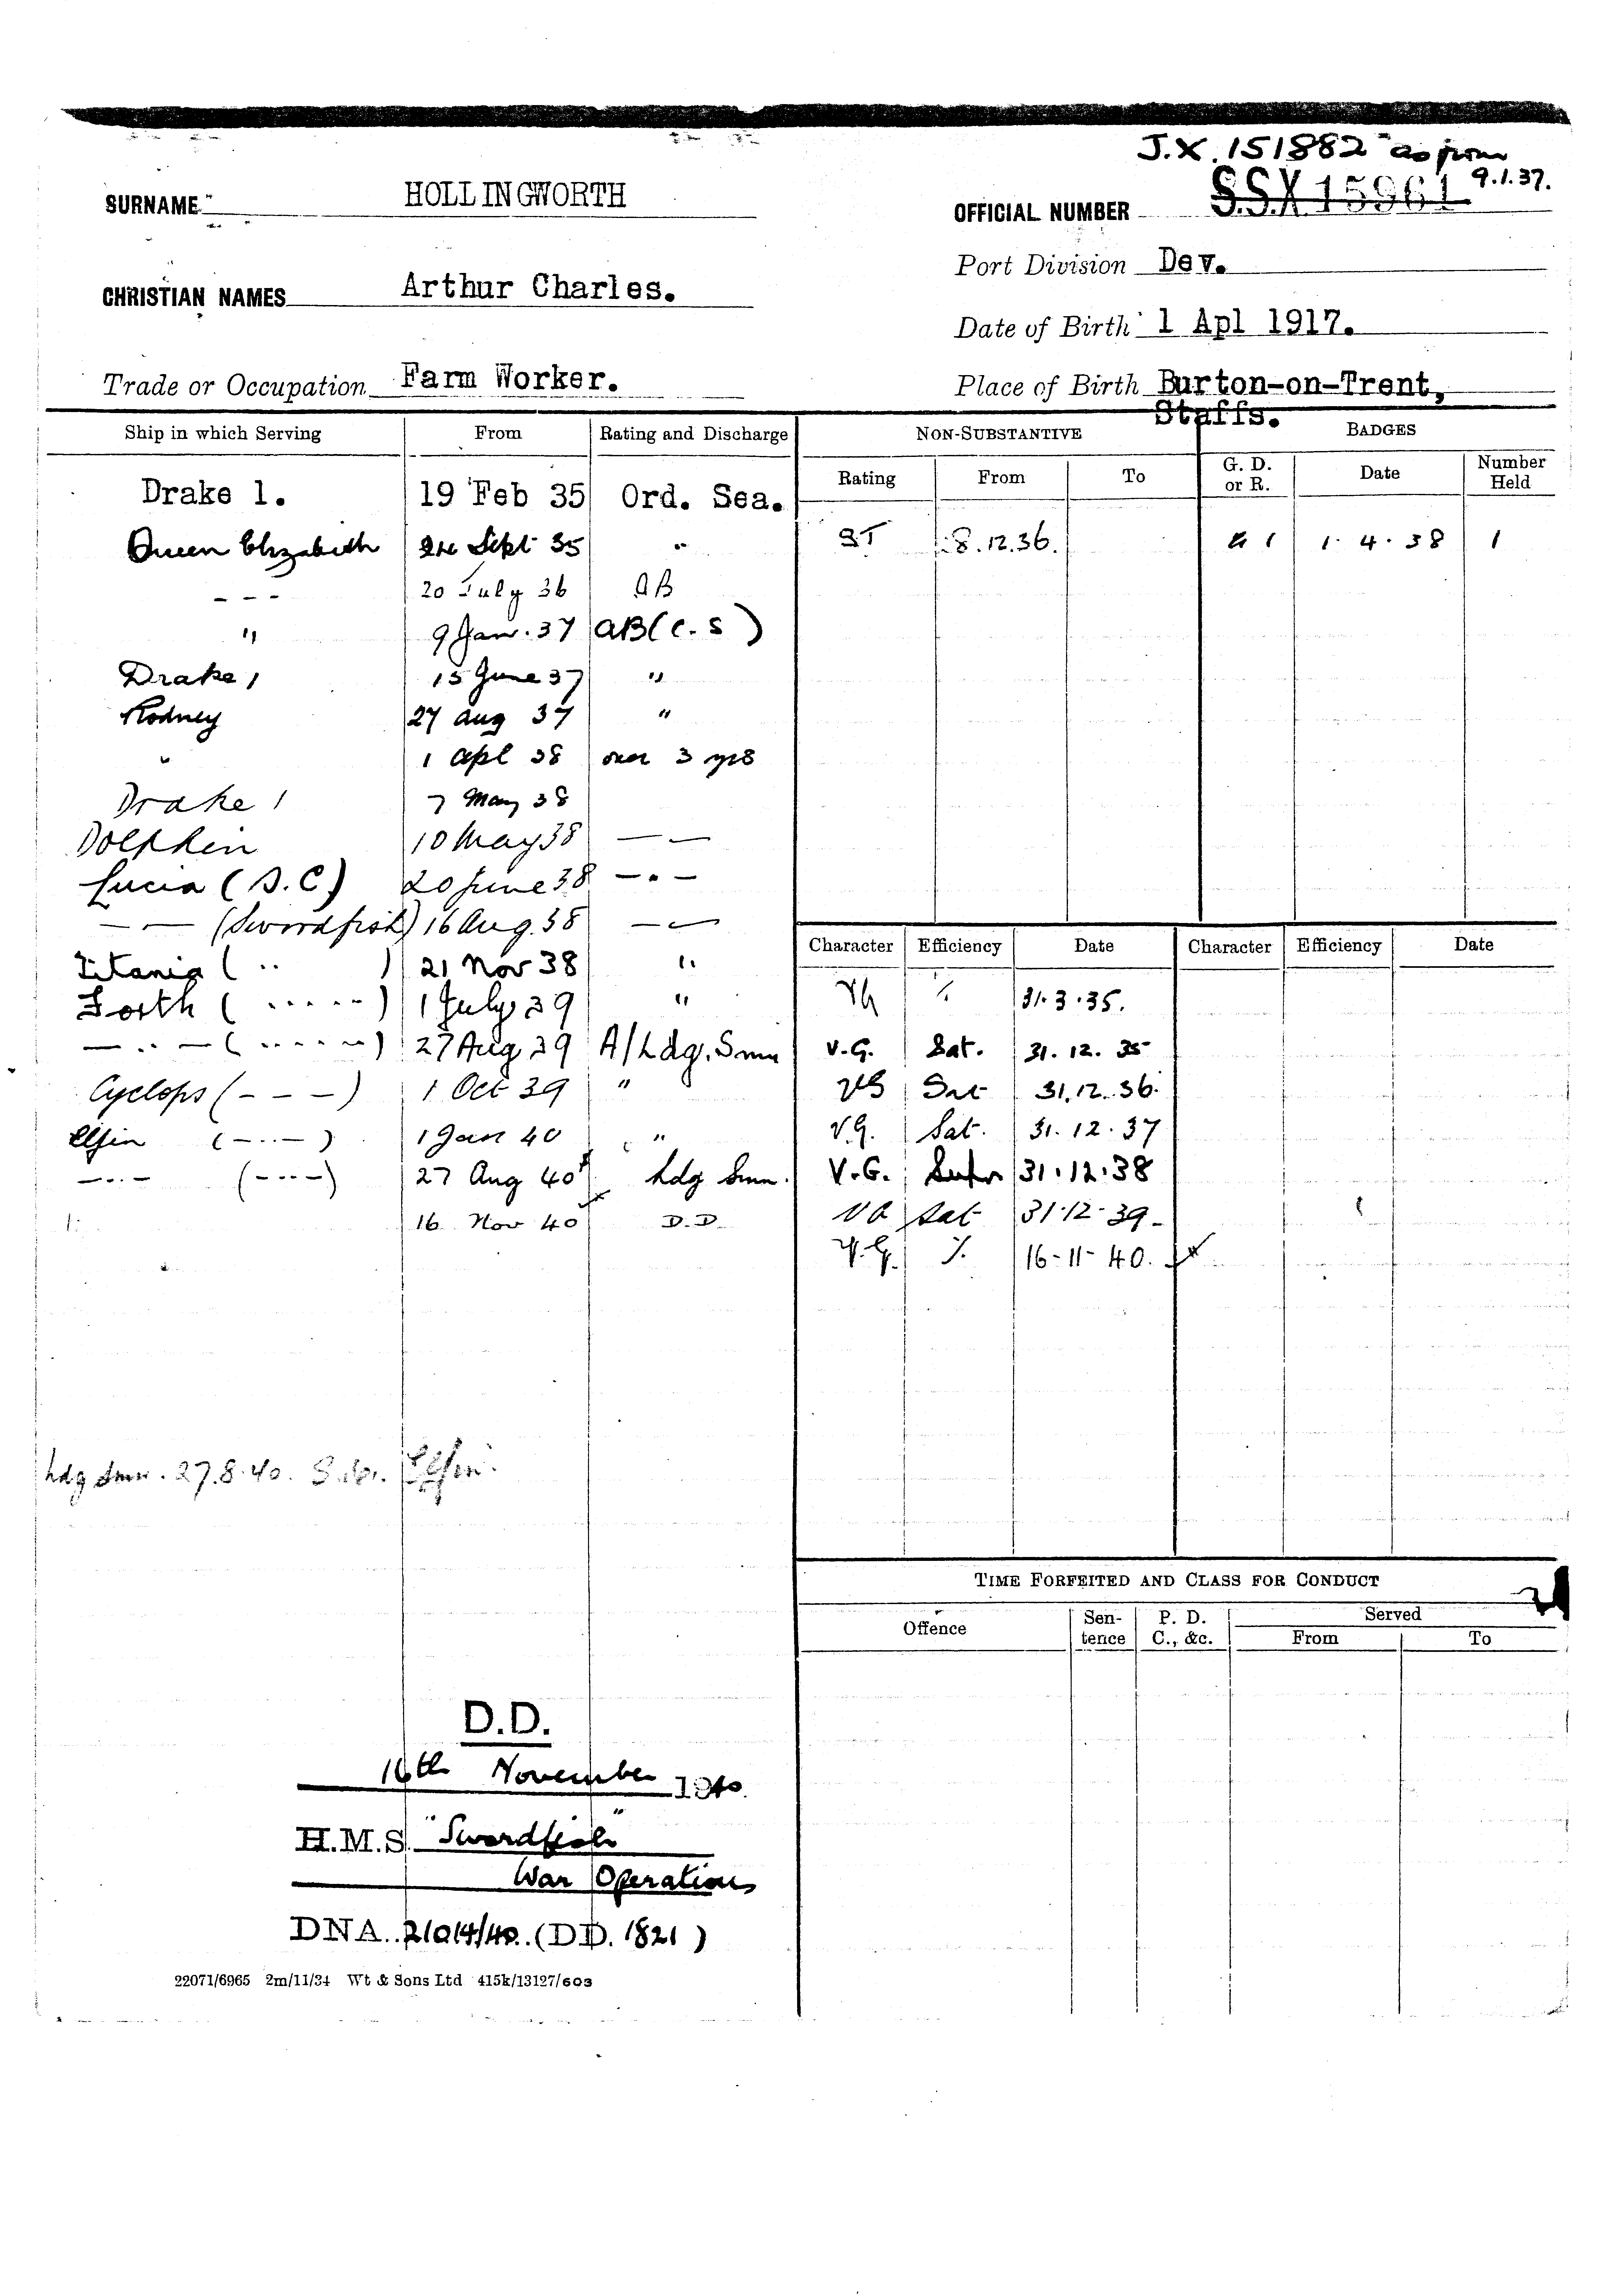 J.X. 151882 as from
9.1.37.
SURNAME HOLLINGWORTH
OFFICIAL NUMBER S.S.X 15961
Port Division Dev.
CHRISTIAN NAMES Arthur Charles.
Date of Birth 1 Apl 1917.
Trade or Occupation Farm Worker.
Place of Birth Burton-on-Trent,
Staffs.
Ship in which Serving From Rating and Discharge
NON-SUBSTANTIVE BADGES
Rating From To G. D. or R. Date Number Held
Drake 1. 19 Feb 35 Ord. Sea.
Queen Elizabeth Sept 35 "
ST 8.12.36. G 1 1.4.38 1
- - - 20 July 36 AB
" 9 Jan. 37 AB (C.S)
Drake 1 15 June 37 "
Rodney 27 Aug 37 "
" 1 Apl 38 over 3 yrs
Drake 1 7 May 38
Dolphin 10 May 38 — —
Lucia (S.C) 20 June 38 — . —
— . — (Swordfish) 16 Aug. 38 — —
Titania ( .. ) 21 Nov 38 "
Forth ( ..... ) 1 July 39 "
— .. — ( ..... ) 27 Aug 39 A/Ldg. Smn
Cyclops (- - -) 1 Oct 39 "
Elfin (-..-) 1 Jan 40 "
-..- (-..-) 27 Aug 40 Ldg Smn.
16 Nov 40 D.D.
Character Efficiency Date Character Efficiency Date
VG 31.3.35.
V.G. Sat. 31.12.35
VG Sat 31.12.36.
V.G. Sat. 31.12.37
V.G. 31.12.38
VG Sat 31.12.39.
V.G. 16-11-40.
Ldg Smn. 27.8.40. Elfin.
TIME FORFEITED AND CLASS FOR CONDUCT
Offence Sentence P. D. C., &c. Served
From To
D.D.
16th November 1940.
H.M.S. "Swordfish"
War Operations
DNA. 21014/40. (DD. 1821)
22071/6965 2m/11/34 Wt & Sons Ltd 415k/13127/603